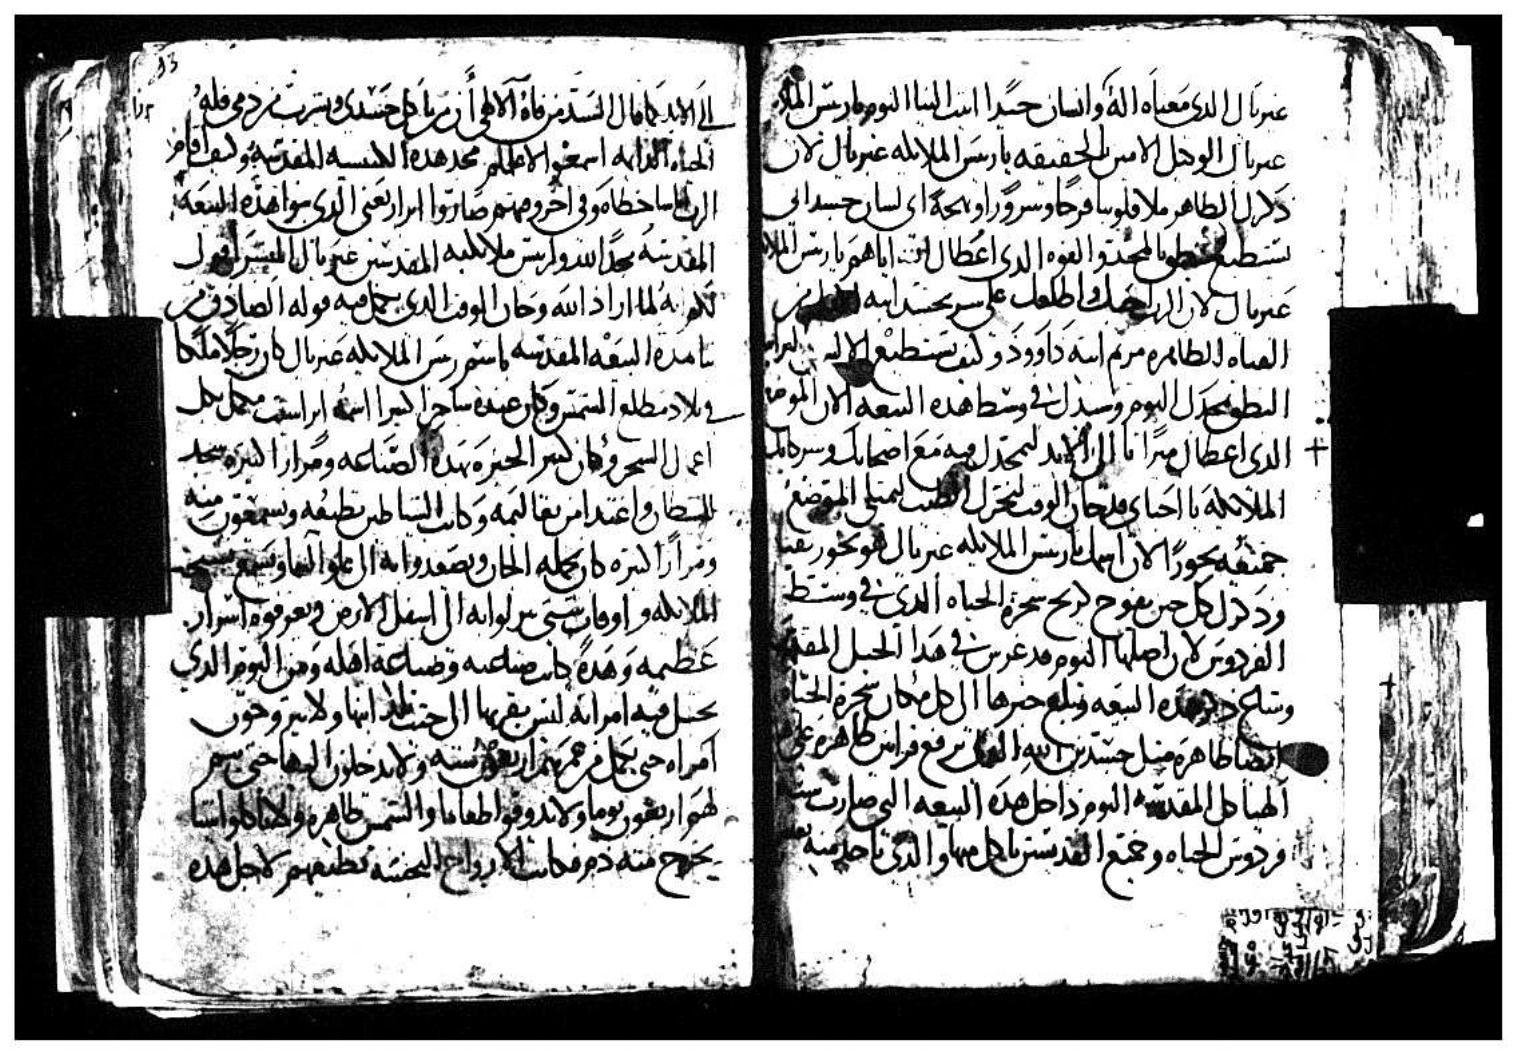 غبريال الذى معناه اله وانسان جسدا انت الينا اليوم يا ريس الملا
غبريال الوحل الامين بالحقيقه يا ريس الملايكه غبريال لان
دلال الطاهر ملا قلوبنا فرحا وسرورا وبهجة اى لسان جسدانى
يستطيع ينطق بالمجد والقوه الذى اعطاك الرب اياهم يا ريس الملا
غبريال لان الرب احبك واطلعك على سر تجسد ابنه من
الفتاه الطاهره مريم ابنة داوود وكيف تستطيع الاله
النطق بمجدك اليوم وسيدك فى وسط هذه البيعه الان الموضع
الذى اعطاك ميراثا الى الابد لتمجد فيه مع اصحابك وشركايك
الملايكه يا احباى قد حان الوقت لتحرك الطيب ليمتلى الموضع
جميعه بخورا لان اسمك يا ريس الملايكه غبريال هو بخور نقيا
وذكرك كل حين يفوح كريح شجرة الحياه الذى فى وسط
الفردوس لان اصلها اليوم قد غرس فى هذا الجبل المقدس
وشاع ذكر هذه البيعه وبلغ خبرها الى كل مكان شجرة الحياه
ايضا طاهره مثل جسد بن الله الذى نرفع قرابين طاهره على
الهياكل المقدسه اليوم داخل هذه البيعه التى صارت شبه
فردوس الحياه وجميع القديسين ياكل منها والذى ياكل منه
93
الى الابد كما قال السيد من فاه الالاهى أن من ياكل جسدى ويشرب من دمى فله
الحياه الدايمه اسمعوا لاعلمكم مجد هذه الكنيسه المقدسه وكيف اقام
الرب اناسا خطاه وفى اخر وهمتهم صاروا ابرار يعنى الذى بنوا هذه البيعه
المقدسه مجدا لله ولريس ملايكته المقدسين غبريال المبشر اقول
لكم انه لما اراد الله وحان الوقت الذى يكمل فيه قوله الصادق من
بنا هذه البيعه المقدسه باسم ريس الملايكه غبريال كان رجلا ملكا
فى بلاد مطلع الشمس وكان عنده ساحرا كبيرا اسمه ابراسيت مكمل بكل
اعمال السحر وكان كثير الخبره بهذه الصناعه ومرارا كثيره سجد
للشيطان واعتد انس بقاليمه وكانت الشياطين تطيعه ويسمعون منه
ومرارا كثيره كان يحمله الجان ويصعدوا به الى علو السما ويسمع تسبيح
الملايكه واوقات شتى ينزلوا به الى اسفل الارض ويعرفوه اسرار
عظيمه وهذه كانت صناعته وصناعة اهله ومن اليوم الذى
تحبل فيه امراته ليس يقربها الى حين تلد ابنها ولا يتزوجون
امراه حتى يكمل من عمرهم اربعون سنه ولا يدخلون اليها حتى يتم
لهم اربعون يوما ولا يذوقوا طعاما والشمس ظاهره ولا ياكلوا شيا
يخرج منه دم فكانت الارواح النجسه تطيعهم لاجل هذه